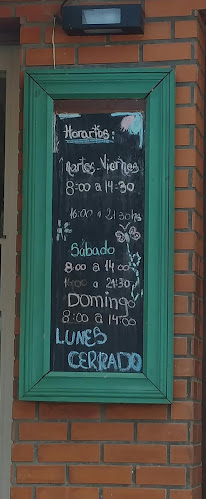 Horarios:
Martes-Viernes
8:00 a 14:30
16:00 a 21:30hs
Sábado
8:00 a 14:00
16:00 a 21:30
Domingo
8:00 a 14:00
LUNES
CERRADO